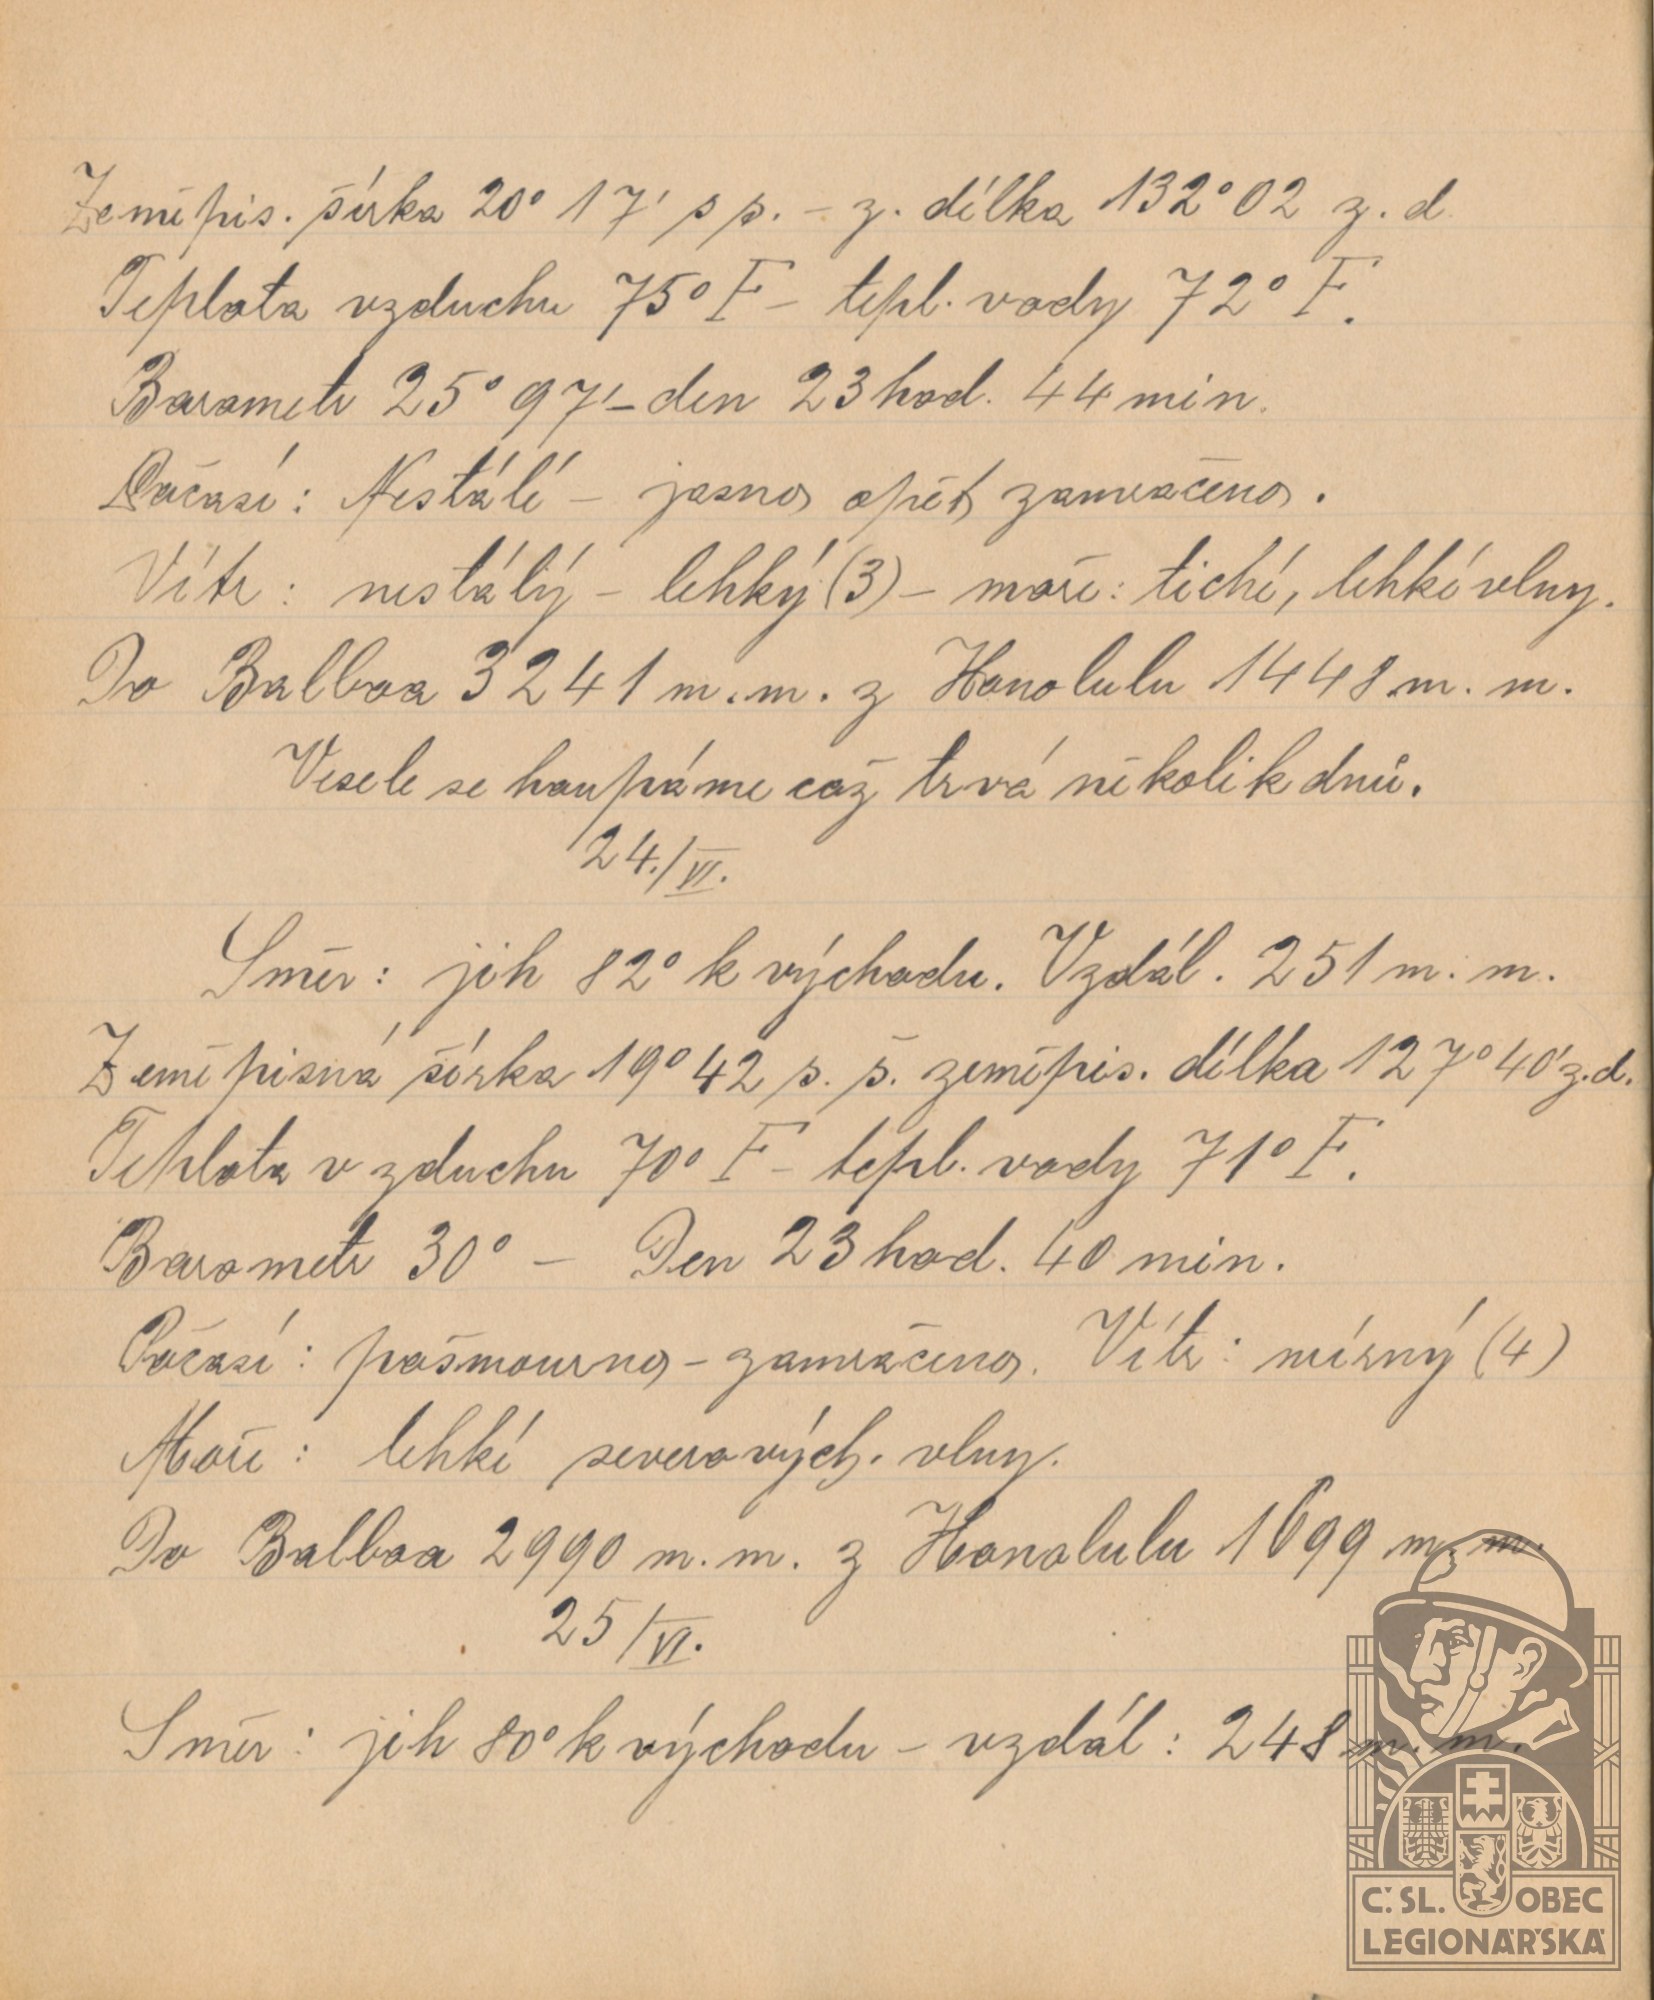 Zeměpis. šírka 20° 17' s p. – z. délka 132° 02 z. d.
Teplota vzduchu 75° F – tepl. vody 72° F.
Barometr 25° 97' – den 23 hod. 44 min.
Počasí: Nestálé – jasno opět zamračeno.
Vítr: nestálý – lehký (3) – moře: tiché, lehké vlny.
Do Balboa 3241 m. m. z Honolulu 1448 m. m.
Vesele se houpáme což trvá několik dnů.
24./VI.
Směr: jih 82° k východu. Vzdál. 251 m. m.
Zeměpisná šírka 19° 42 s. š. zeměpis. délka 127° 40' z. d.
Teplota vzduchu 70° F – tepl. vody 71° F.
Barometr 30° – Den 23 hod. 40 min.
Počasí: pošmourno – zamračeno. Vítr: mírný (4)
Moře: lehké severových. vlny.
Do Balboa 2990 m. m. z Honolulu 1699 m. m.
25/VI.
Směr: jih 80° k východu – vzdál: 248 m. m.
Č. SL. OBEC
LEGIONÁŘSKÁ